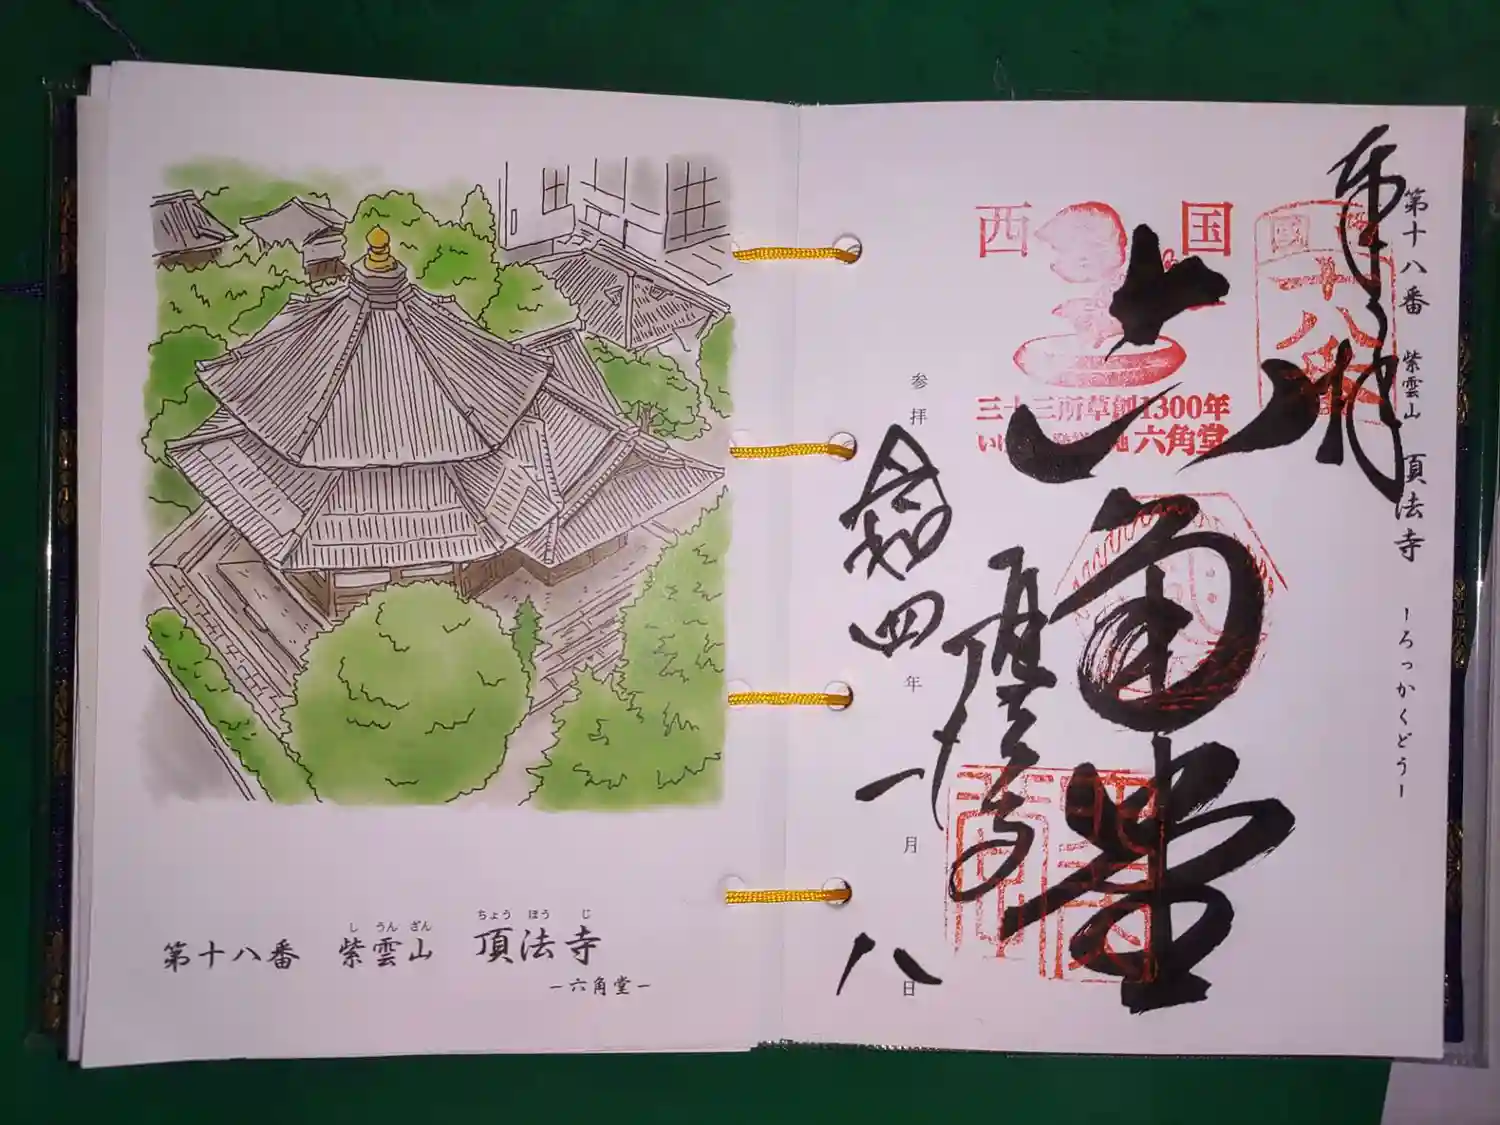 第十八番 紫雲山 頂法寺
し うん ざん ちょう ほう じ
−六角堂−
第十八番 紫雲山 頂法寺 −ろっかくどう−
奉拝
西国
十八番
三十三所草創1300年
六角堂
六角堂
頂法寺
参拝 令和四年一月八日